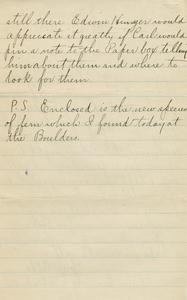 still there. Edwin Hunger would
appreciate it greatly if Carl would
pin a note to the Paper box telling
him about them and where to
look for them.
P.S. Enclosed is the new species
of fern which I found today at
the Boulders.